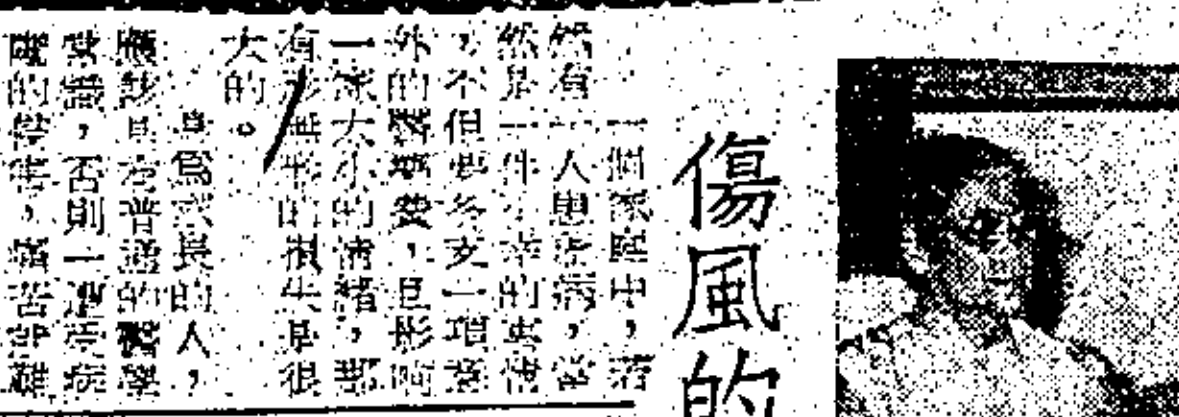 傷風的
一個家庭中，若
然有一人患疾病，當
然是一件不幸的事情
，不但要多支一項意
外的醫藥費，且影响
一家大小的情緒，那
有形無形的損失是很
大的。
身為家長的人，
應該具有普通的醫學
常識，否則一遇疾病
的，痛苦